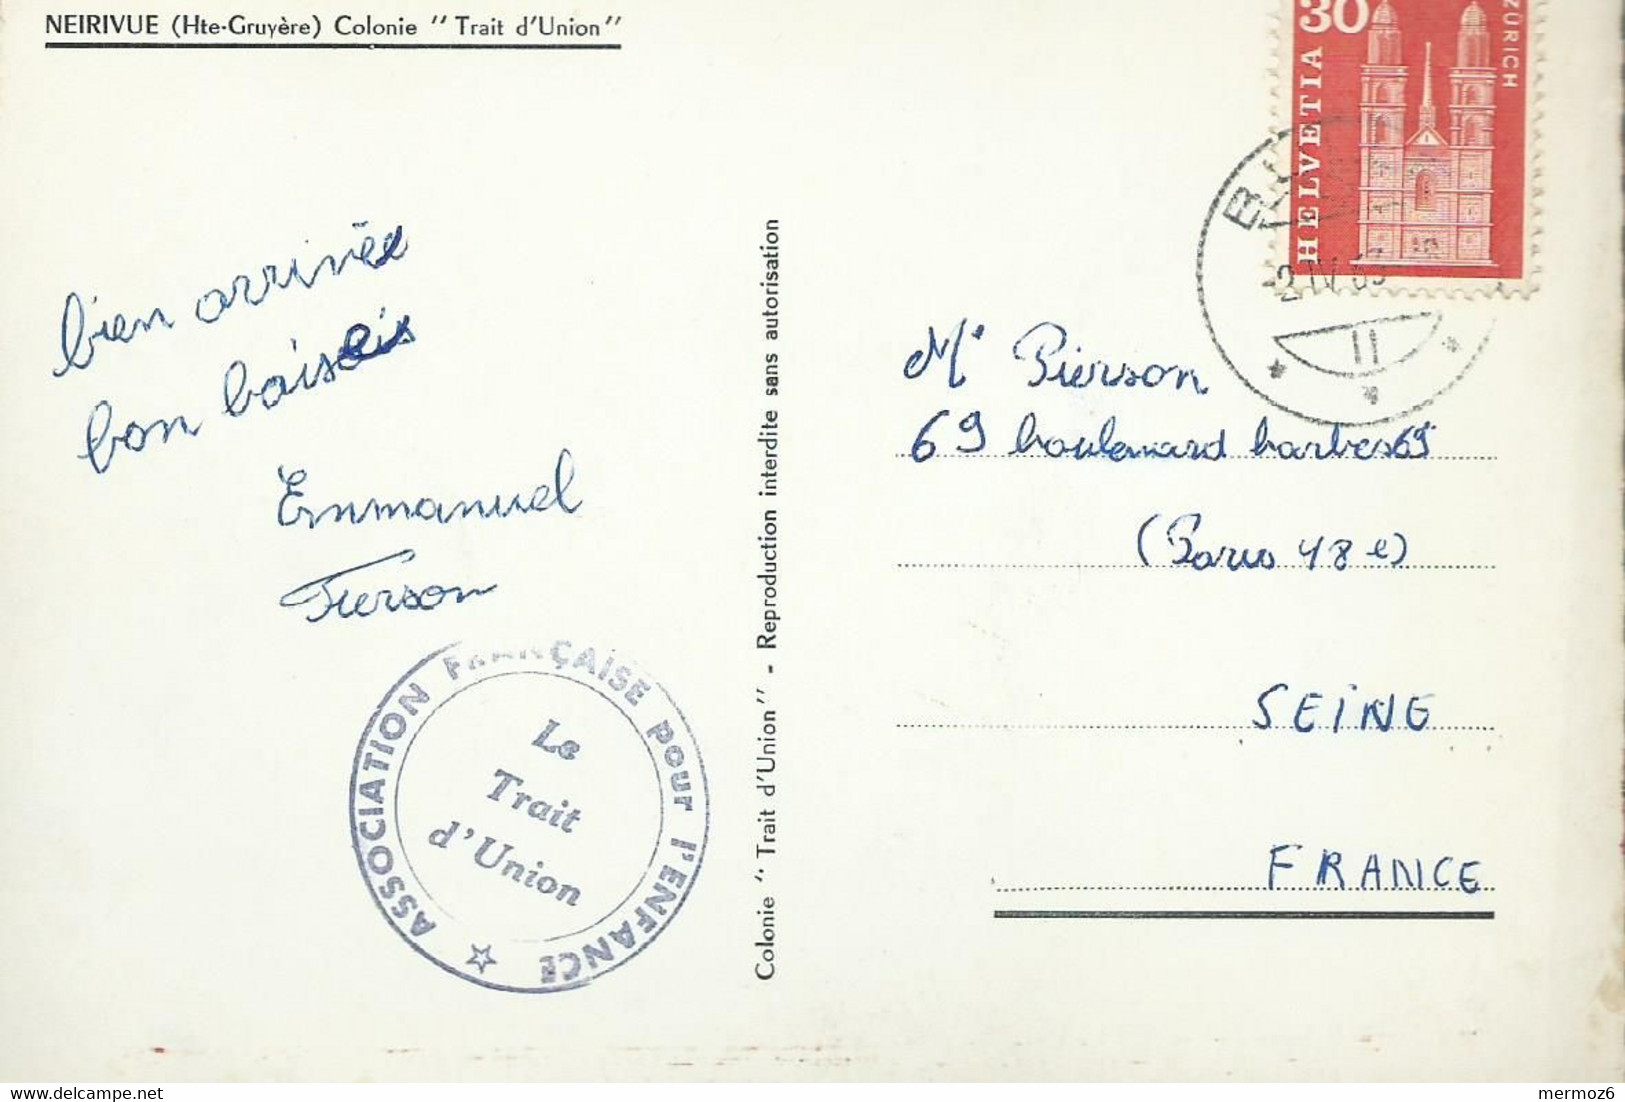 NEIRIVUE (Hte-Gruyère) Colonie "Trait d'Union"
30
ZÜRICH
HELVETIA
2 IV 63
II
bien arrivée
bon baiseis
Emmanuel
Pierson
ASSOCIATION FRANÇAISE pour l'ENFANCE
Le
Trait
d'Union
Colonie "Trait d'Union" - Reproduction interdite sans autorisation
Mr Pierson
69 boulevard barbes 69
(Paris 18 e)
SEINE
FRANCE
mermoz6